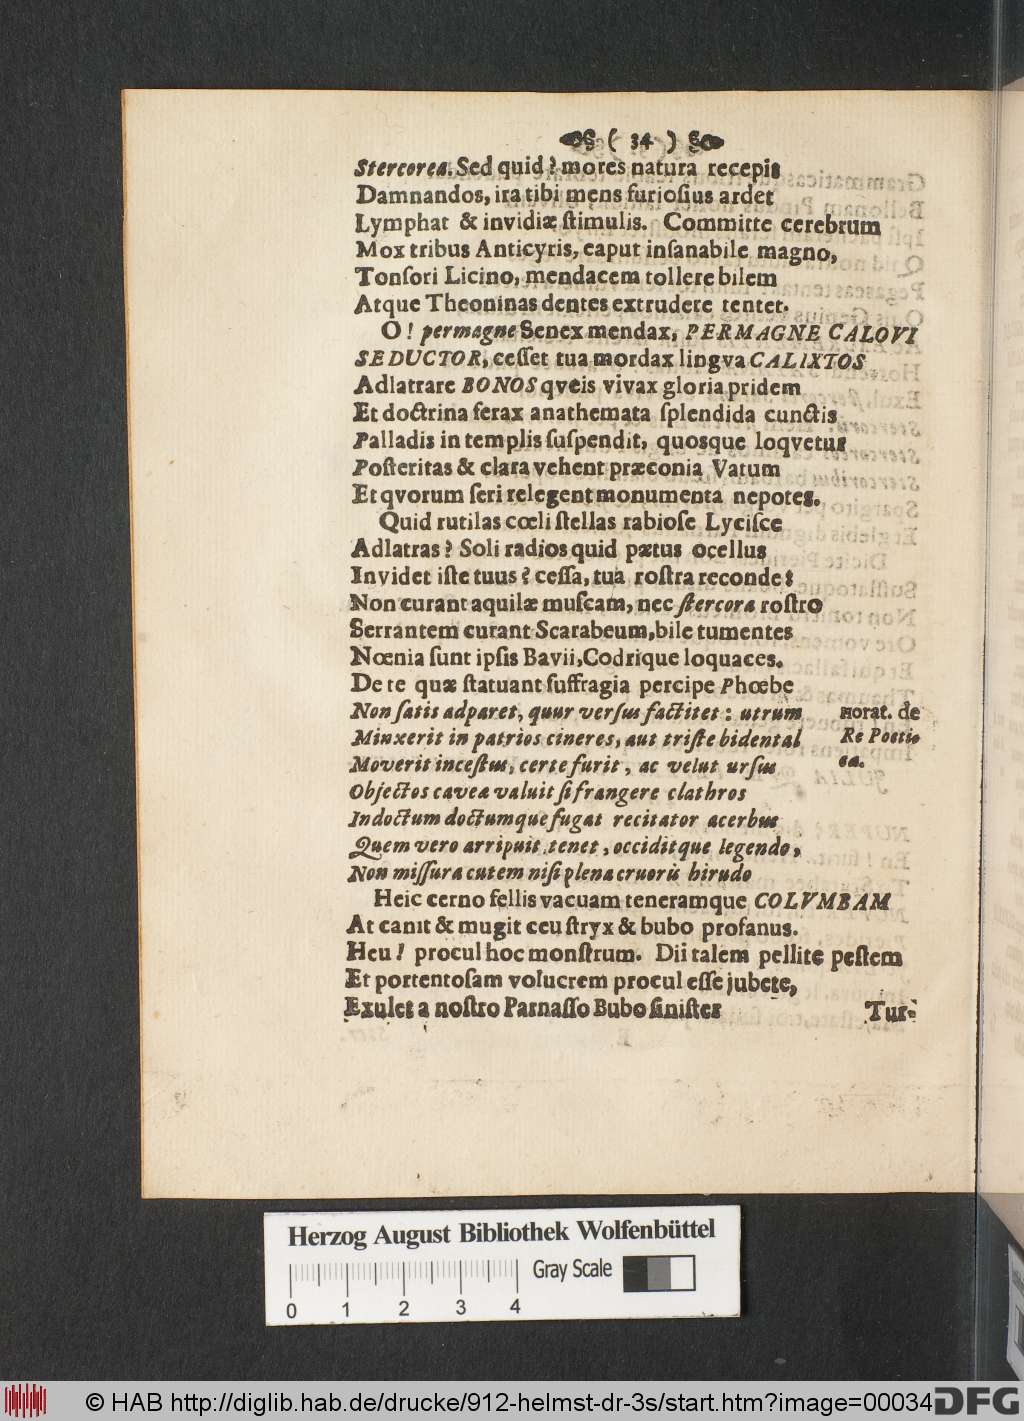 ( 34 )
Stercorea. Sed quid? mores natura recepit
Damnandos, ira tibi mens furioſius ardet
Lymphat & invidiæ ſtimulis. Committe cerebrum
Mox tribus Anticyris, caput inſanabile magno,
Tonſori Licino, mendacem tollere bilem
Atque Theoninas dentes extrudere tentet.
O! permagne Senex mendax, PERMAGNE CALOVI
SEDUCTOR, ceſſet tua mordax lingva CALIXTOS
Adlatrare BONOS qveis vivax gloria pridem
Et doctrina ferax anathemata ſplendida cunctis
Palladis in templis ſuſpendit, quosque loqvetur
Poſteritas & clara vehent præconia Vatum
Et qvorum ſeri relegent monumenta nepotes.
Quid rutilas cœli ſtellas rabioſe Lyciſce
Adlatras? Soli radios quid pætus ocellus
Invidet iſte tuus? ceſſa, tua roſtra reconde:
Non curant aquilæ muſcam, nec ſtercora roſtro
Serrantem curant Scarabeum, bile tumentes
Nœnia ſunt ipſis Bavii, Codrique loquaces.
De te quæ ſtatuant ſuffragia percipe Phœbe
Non ſatis adparet, quur verſus factitet: utrum
Horat. de
Minxerit in patrios cineres, aut triſte bidental
Re Poetic
Moverit inceſtus, certe furit, ac velut urſus
ea.
Objectos caveæ valuit ſi frangere clathros
Indoctum doctumque fugat recitator acerbus
Quem vero arripuit, tenet, occiditque legendo,
Non miſſura cutem niſi plena cruoris hirudo
Heic cerno fellis vacuam teneramque COLVMBAM
At canit & mugit ceu ſtryx & bubo profanus.
Heu! procul hoc monſtrum. Dii talem pellite peſtem
Et portentoſam volucrem procul eſſe jubete,
Exulet a noſtro Parnaſſo Bubo ſiniſter
Tur-
Herzog August Bibliothek Wolfenbüttel
Gray Scale
0 1 2 3 4
© HAB http://diglib.hab.de/drucke/912-helmst-dr-3s/start.htm?image=00034
DFG